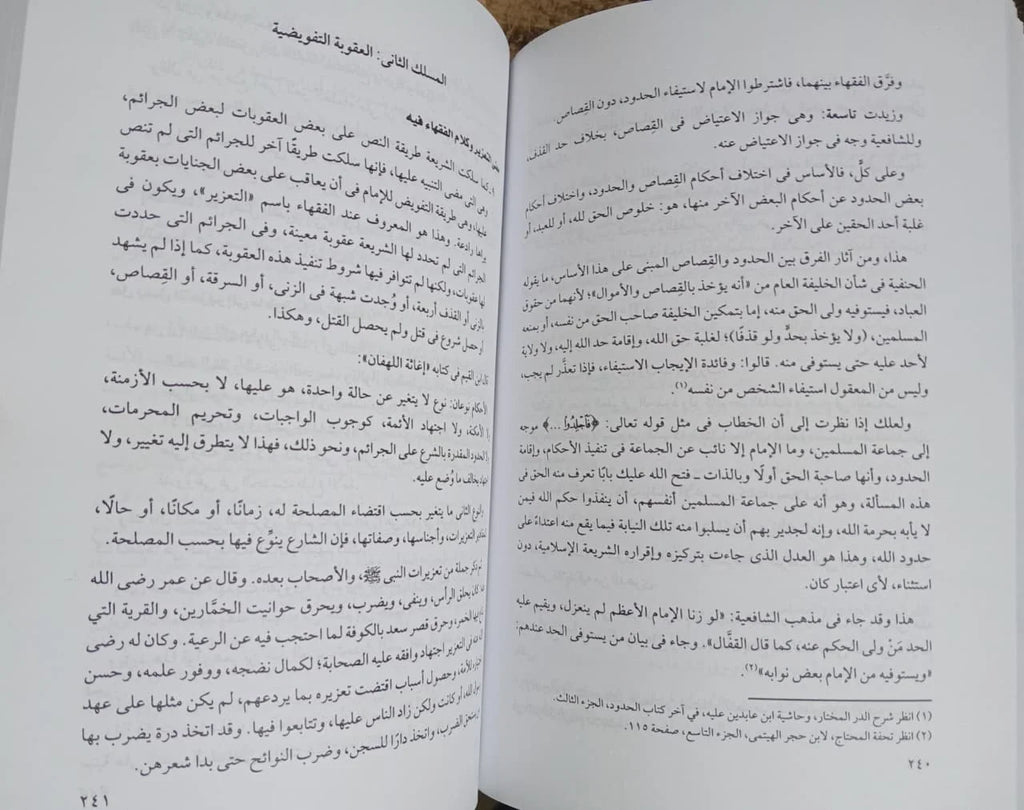 وفرَّق الفقهاء بينهما، فاشترطوا الإمام لاستيفاء الحدود، دون القِصاص.
وزيدت تاسعة: وهى جواز الاعتياض فى القِصاص، بخلاف حد القذف،
وللشافعية وجه فى جواز الاعتياض عنه.
وعلى كلٍّ، فالأساس فى اختلاف أحكام القِصاص والحدود، واختلاف أحكام
بعض الحدود عن أحكام البعض الآخر منها، هو: خلوص الحق لله، أو للعبد، أو
غلبة أحد الحقين على الآخر.
هذا، ومن آثار الفرق بين الحدود والقِصاص المبنى على هذا الأساس، ما يقوله
الحنفية فى شأن الخليفة العام من «أنه يؤخذ بالقِصاص والأموال»؛ لأنهما من حقوق
العباد، فيستوفيه ولى الحق منه، إما بتمكين الخليفة صاحب الحق من نفسه، أو بمنعه
المسلمين، (ولا يؤخذ بحدٍّ ولو قذفًا)؛ لغلبة حق الله، وإقامة حد الله إليه، ولا ولاية
لأحد عليه حتى يستوفى منه. قالوا: وفائدة الإيجاب الاستيفاء، فإذا تعذَّر لم يجب،
وليس من المعقول استيفاء الشخص من نفسه(١).
ولعلك إذا نظرت إلى أن الخطاب فى مثل قوله تعالى: ﴿فَٱجْلِدُوا۟ ...﴾ موجه
إلى جماعة المسلمين، وما الإمام إلا نائب عن الجماعة فى تنفيذ الأحكام، وإقامة
الحدود، وأنها صاحبة الحق أولًا وبالذات ـ فتح الله عليك بابًا تعرف منه الحق فى
هذه المسألة، وهو أنه على جماعة المسلمين أنفسهم، أن ينفذوا حكم الله فيمن
لا يأبه بحرمة الله، وإنه لجدير بهم أن يسلبوا منه تلك النيابة فيما يقع منه اعتداءً على
حدود الله، وهذا هو العدل الذى جاءت بتركيزه وإقراره الشريعة الإسلامية، دون
استثناء، لأى اعتبار كان.
هذا وقد جاء فى مذهب الشافعية: «لو زنا الإمام الأعظم لم ينعزل، ويقيم عليه
الحد مَنْ ولى الحكم عنه، كما قال القفَّال». وجاء فى بيان من يستوفى الحد عندهم:
«ويستوفيه من الإمام بعض نوابه»(٢).
(١) انظر شرح الدر المختار، وحاشية ابن عابدين عليه، في آخر كتاب الحدود، الجزء الثالث.
(٢) انظر تحفة المحتاج، لابن حجر الهيتمى، الجزء التاسع، صفحة ١١٥.
٢٤٠
المسلك الثانى: العقوبة التفويضية
التعزير وكلام الفقهاء فيه
١- كما سلكت الشريعة طريقة النص على بعض العقوبات لبعض الجرائم،
وهى التى مضى التنبيه عليها، فإنها سلكت طريقًا آخر للجرائم التى لم تنص
عليها، وهى طريقة التفويض للإمام فى أن يعاقب على بعض الجنايات بعقوبة
يراها رادعة. وهذا هو المعروف عند الفقهاء باسم «التعزير»، ويكون فى
الجرائم التى لم تحدد لها الشريعة عقوبة معينة، وفى الجرائم التى حددت
لها عقوبات، ولكنها لم تتوافر فيها شروط تنفيذ هذه العقوبة، كما إذا لم يشهد
بالزنى أو القذف أربعة، أو وُجدت شبهة فى الزنى، أو السرقة، أو القِصاص،
أو حصل شروع فى قتل ولم يحصل القتل، وهكذا.
قال ابن القيم فى كتابه «إغاثة اللهفان»:
الأحكام نوعان: نوع لا يتغير عن حالة واحدة، هو عليها، لا بحسب الأزمنة،
ولا الأمكنة، ولا اجتهاد الأئمة، كوجوب الواجبات، وتحريم المحرمات،
والحدود المقدرة بالشرع على الجرائم، ونحو ذلك، فهذا لا يتطرق إليه تغيير، ولا
اجتهاد يخالف ما وُضع عليه.
والنوع الثانى ما يتغير بحسب اقتضاء المصلحة له، زمانًا، أو مكانًا، أو حالًا،
كمقادير التعزيرات، وأجناسها، وصفاتها، فإن الشارع ينوِّع فيها بحسب المصلحة.
ثم ذكر جملة من تعزيرات النبى ﷺ، والأصحاب بعده. وقال عن عمر رضى الله
عنه: كان يحلق الرأس، وينفى، ويضرب، ويحرق حوانيت الخمَّارين، والقرية التي
تباع فيها الخمر، وحرق قصر سعد بالكوفة لما احتجب فيه عن الرعية. وكان له رضى
الله عنه فى التعزير اجتهاد وافقه عليه الصحابة؛ لكمال نضجه، ووفور علمه، وحسن
للأمة، وحصول أسباب اقتضت تعزيره بما يردعهم، لم يكن مثلها على عهد
رسول الله، أو كانت ولكن زاد الناس عليها، وتتابعوا فيها. وقد اتخذ درة يضرب بها
من يستحق الضرب، واتخذ دارًا للسجن، وضرب النوائح حتى بدا شعرهن.
٢٤١